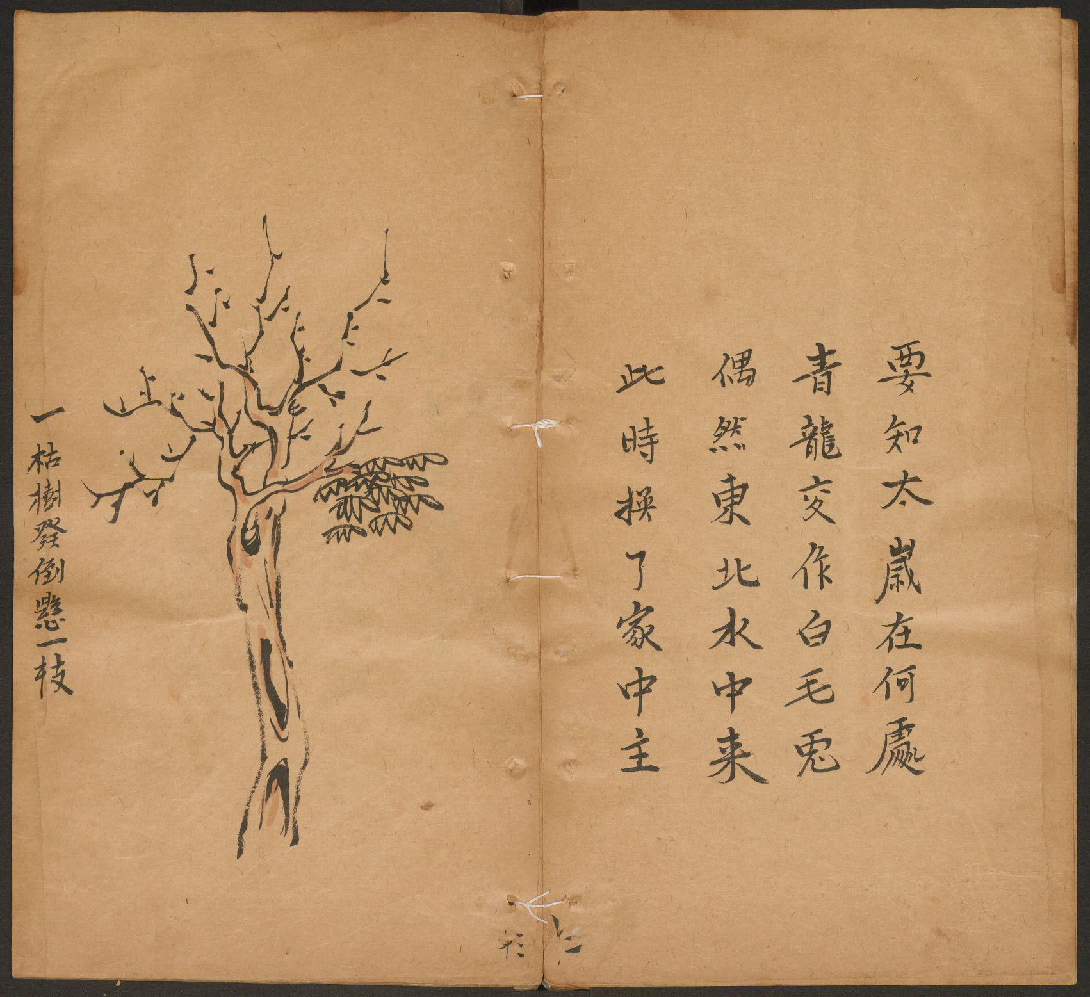 要知太歲在何處
青龍交作白毛兎
偶然東北水中来
此時換了家中主
一枯樹發倒懸一枝